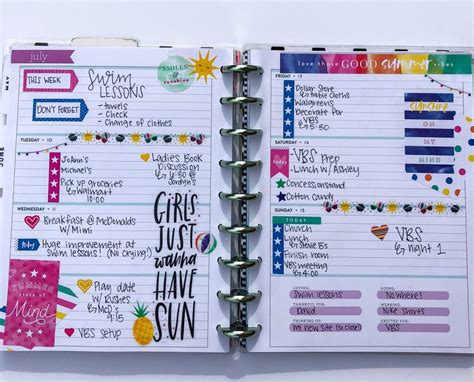 MAY
JUNE
july
THIS WEEK
DON'T FORGET
Swim
LESSONS
- towels
- Check
- Change of clothes
SMILES
&
sunshine
TUESDAY • 10
JoAnn's
Michael's
Pick up groceries
@ Walmart
10:00
Ladies Book
Discussion
@ 6:30 @
Jordyn's
WEDNESDAY • 11
Breakfast @ McDonalds
w/ Mimi
today
Huge improvement at
Swim lessons! (No crying!)
SUMMER
state of
Mind
Play date
w/ Rushes
@ McD's
9:15
VBS setup
GIRLS
JUST
wanna
HAVE
SUN
love those GOOD summer vibes
FRIDAY • 13
Dollar Store
table cloths
Walgreens
Decorate for
VBS
@ 5:30
SUNSHINE
ON
MY
MIND
SATURDAY • 14
today
VBS Prep
- Lunch w/ Ashley
Concession stand
Cotton Candy
SUNDAY • 15
TODAY
Church
Lunch
@ Steve B's
Finish room
VBS meeting
@ 4:30
VBS
night 1
LOVING:
Swim lessons
GOING:
Nowhere!
THANKFUL:
David
WEARING:
Nike Shorts
THINKING:
my new site (so close!)
EXCITED:
VBS